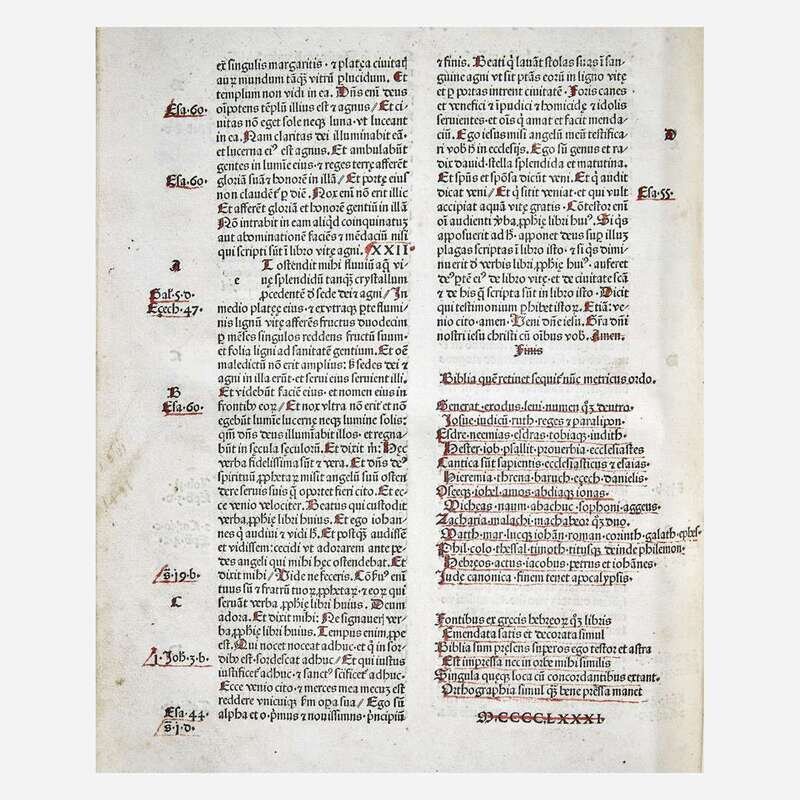 ex singulis margaritis · ⁊ platea ciuitatꝭ
aurꝰ mundum tãq̃ʒ vitrũ plucidum. Et
templum non vidi in ea. Dñs em̃ deus
oĩpotens tẽplũ illius est ⁊ agnus / Et ci/
Esa·60·
uitas nõ eget sole neqʒ luna · vt luceant
in ea. Nam claritas dei illuminabit eã·
et lucerna eiꝰ est agnus. Et ambulabũt
gentes in lumĩe eius · ⁊ reges terre afferẽt
Esa·60·
gloriã suã ⁊ honorẽ in illã / Et porte eiꝰ
non claudẽtꝛ ꝑ diẽ. Nox em̃ nõ erit illic
Et afferẽt gloriã et honorẽ gentiũ in illã
Nõ intrabit in eam aliqd coinquinatuʒ
aut abominationẽ faciẽs ⁊ mẽdaciũ nisi
qui scripti sũt ĩ libro vite agni. XXII·
A
T ostendit mihi fluuiũ aq̃ vi/
e
ne splendidũ tanqʒ crystallum
Gal·5·d·
ꝓcedentẽ d̃ sede dei ⁊ agni / In
Ezech·47·
medio platee eius · ⁊ ex vtraqʒ ꝑte flumi/
nis lignũ vite afferẽs fructus duodecim
ꝑ mẽses singulos reddens fructũ suum ·
et folia ligni ad sanitatẽ gentium. Et oẽ
C
maledictũ nõ erit amplius: sʒ sedes dei ⁊
agni in illa erũt · et serui eius seruient illi.
B
Et videbũt faciẽ eius · et nomen eius in
Esa·60·
frontibꝰ eoꝝ / Et nox vltra nõ erit et nõ
egebũt lumĩe lucerne neqʒ lumine solis:
qm̃ dñs deus illuminabit illos · et regna/
bũt in secula seculorũ. Et dixit m̃: Hec
verba fidelissima sũt ⁊ vera. Et dñs deꝰ
spirituũ ꝓphetaꝝ misit angelũ suũ osten/
dere seruis suis q̃ oportet fieri cito. Et ec/
ce venio velociter. Beatus qui custodit
verba ꝓphẽie libri huius. Et ego iohan/
nes q̃ audiui ⁊ vidi h̃. Et postqʒ audissẽ
et vidissem: cecidi vt adorarem ante pe/
des angeli qui mihi hec ostendebat. Et
s·19·b·
dixit mihi / Vide ne feceris. Cõẽuꝰ em̃
tuus sũ ⁊ fratrũ tuoꝝ ꝓphetaꝝ · ⁊ eoꝝ qui
C
seruãt verba ꝓphẽie libri huius. Deum
adora. Et dixit mihi: Ne signaueris ver/
ba ꝓphẽie libri huius. Tempus enim ꝓpe
est. Qui nocet noceat adhuc · et q̃ in sor/
1·Joh·3·b·
dibꝰ est · sordescat adhuc / Et qui iustus
iustificetꝛ adhuc · ⁊ sanctꝰ scificetꝛ adhuc·
Ecce venio cito · ⁊ merces mea mecuʒ est
reddere vnicuiqʒ ẽm oꝑa sua / Ego sũ
Esa·44·
alpha et o · pͥmus ⁊ nouissimus · pͥncipiũ
s·1·d·
⁊ finis. Beati q̃ lauãt stolas suas ĩ san/
guine agni vt sit ptãs eorũ in ligno vite
et ꝑ portas intrent ciuitatẽ · Foris canes ·
et venefici ⁊ ĩpudici ⁊ homicide ⁊ idolis
seruientes · et oĩs q̃ amat et facit menda/
D
ciũ. Ego iesus misi angelũ meũ testifica/
ri vob̃ h̃ in ecclesijs. Ego sũ genus et ra/
dix dauid · stella splendida et matutina.
Et spũs et spõsa dicũt veni. Et q̃ audit
dicat veni / Et q̃ sitit veniat · et qui vult
Esa·55·
accipiat aquã vite gratis · Cõtestor em̃
oĩ audienti ṽba ꝓphẽie libri huiꝰ. Si qs
apposuerit ad h̃ · apponet deus suꝑ illuʒ
plagas scriptas ĩ libro isto · ⁊ si qs dimi/
nuerit d̃ verbis libri ꝓphẽie huiꝰ · auferet
deꝰ ꝑtẽ eiꝰ de libro vite · et de ciuitate scã
⁊ de his q̃ scripta sũt in libro isto · Dicit
qui testimonium ꝑhibet istoꝝ. Etiã: ve/
nio cito · amen · Veni dñe iesu. Grã dñi
nostri iesu christi cũ oĩbus vob̃. Amen.
Finis
Biblia quẽ retinet sequitꝛ nũc metricus ordo.
Generat · exodus · leui · numen qʒ deutro·
Josue · iudicũ · ruth · reges ⁊ paralipon·
Esdre · neemias · esdras · tobiaqʒ · iudith·
Hester · iob · psallit · prouerbia · ecclesiastes
Cantica sũt sapientis · ecclesiasticus ⁊ esaias·
Hieremia · threna · baruch · ezech · danielis·
Oseeqʒ · iohel · amos · abdiaqʒ ionas·
Micheas · naum · abachuc · sophoni · aggeus·
Zacharia · malachi · machabeoꝝ qʒ duo·
Matth · mar · lucqʒ iohãn · roman · corinth · galath · ephes·
Phil · colo · thessal · timoth · titusqʒ deinde philemon·
Hebreos · actus · iacobus · petrus et iohãnes·
Jude canonica · finem tenet apocalypsis·
Fontibus ex grecis hebreoꝝ qʒ libris
Emendata satis et decorata simul
Biblia sum presens superos ego testor et astra
Est impressa nec in orbe mihi similis
Singula queqʒ loca cũ concordantibus extant·
Orthographia simul qʒ bene pressa manet
M·CCCCLXXXI·